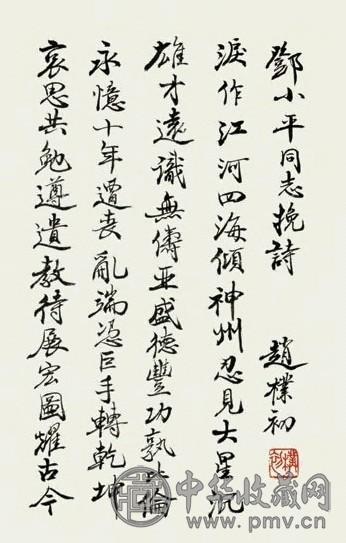 鄧小平同志挽詩 趙樸初
淚作江河四海傾神州忍見大星沉
雄才遠識無儔亞盛德豐功孰比倫
永憶十年遭喪亂端憑巨手轉乾坤
哀思共勉遵遺教待展宏圖耀古今
中华收藏网
www.pmv.cn